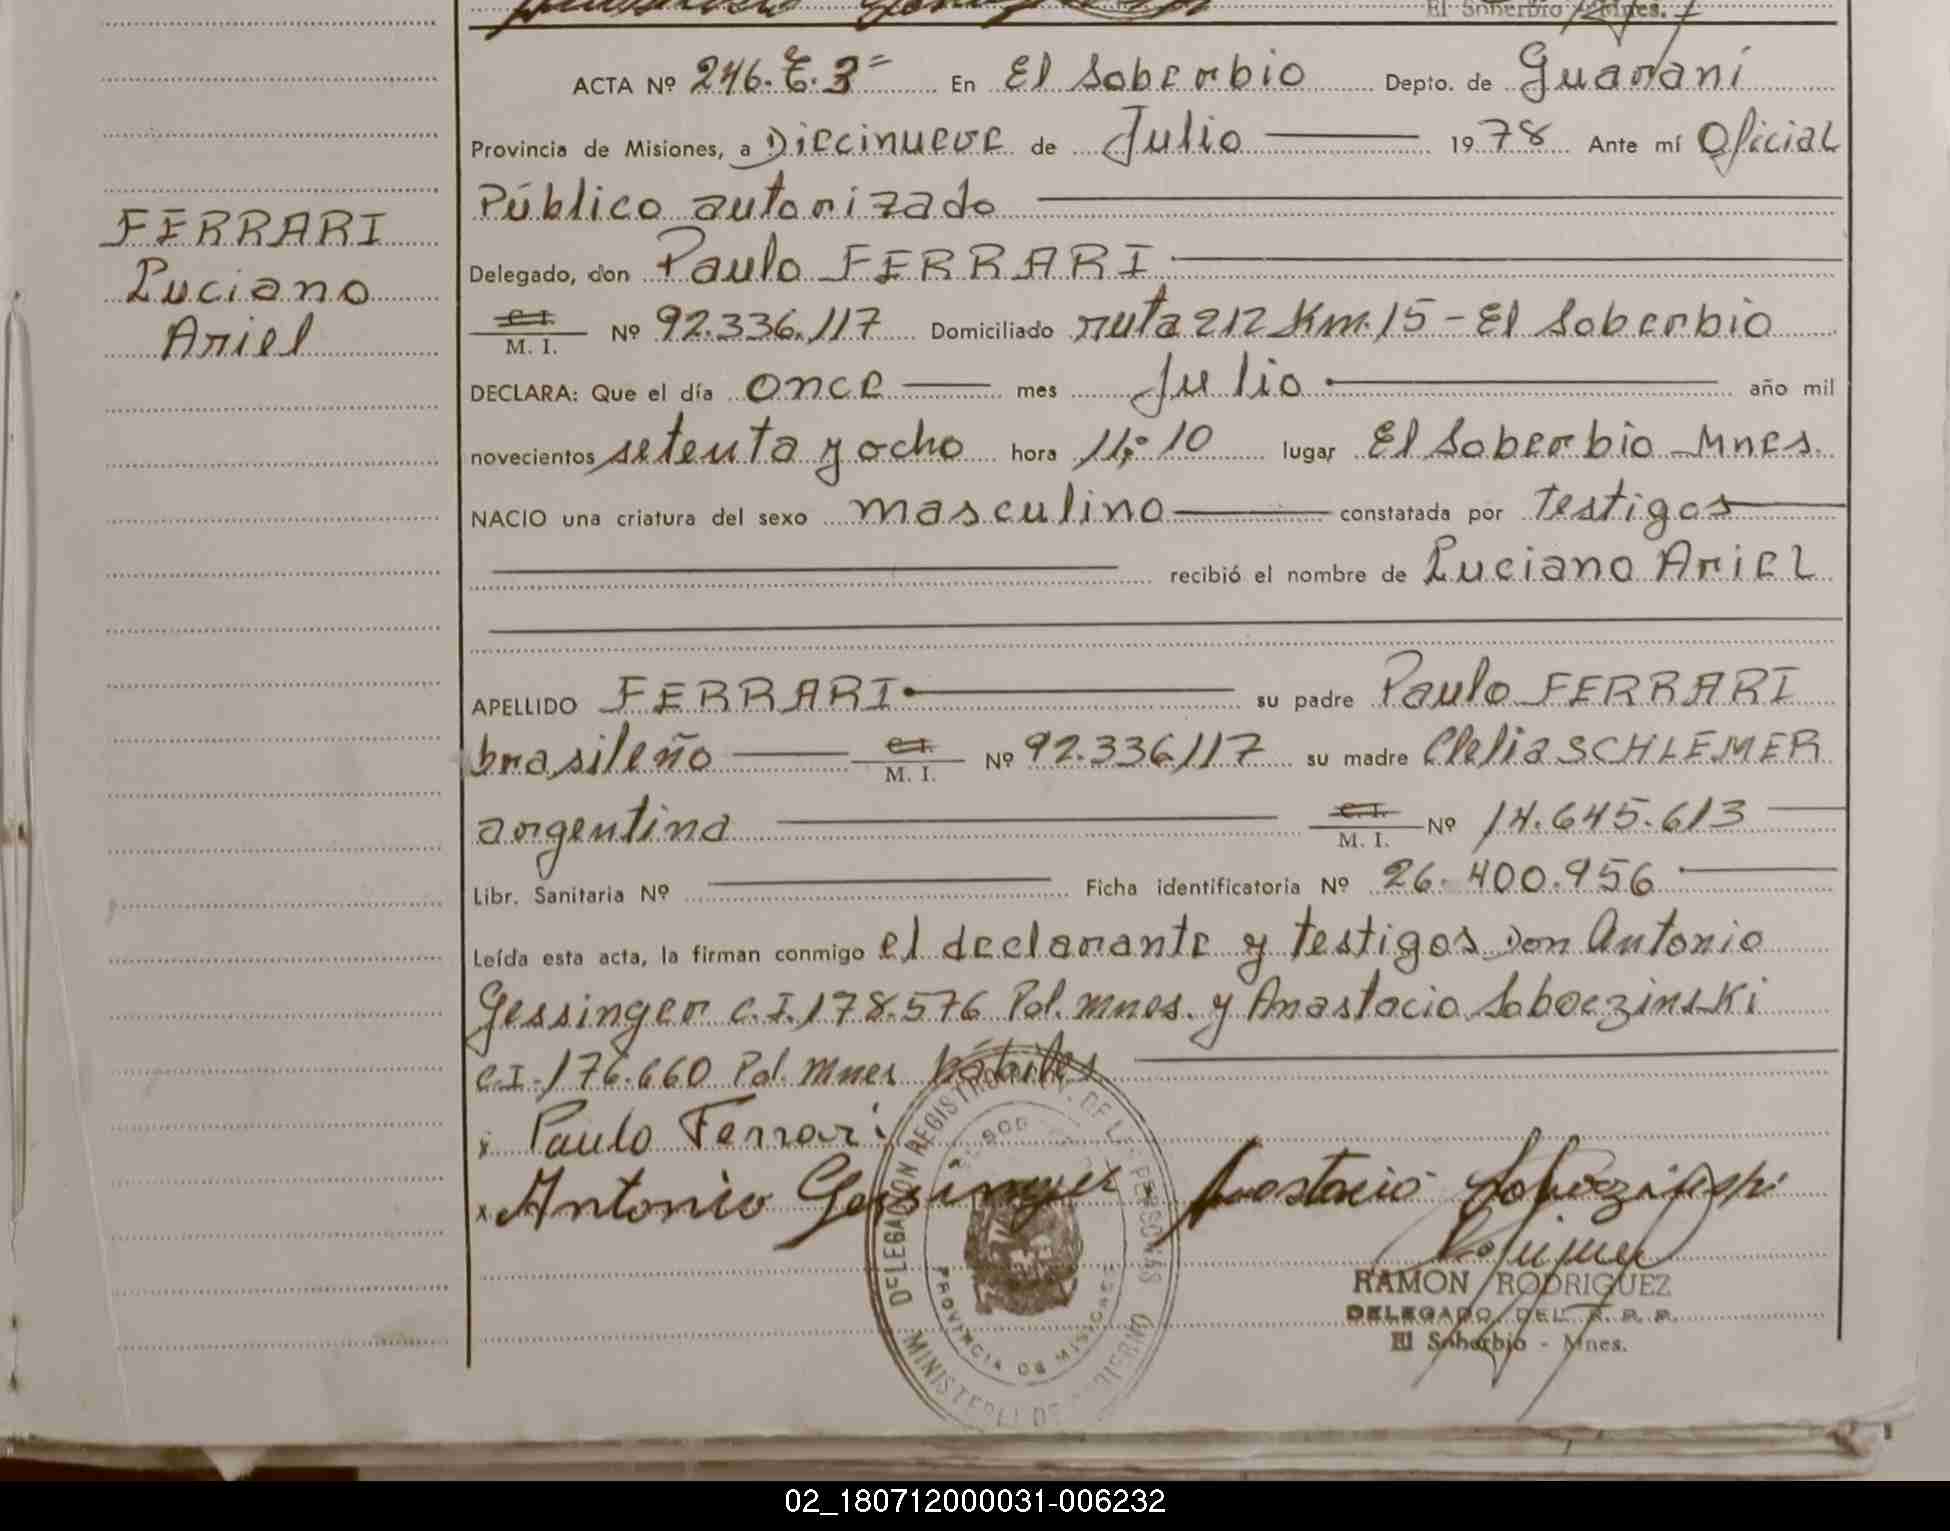 El Soberbio - Mnes.
ACTA Nº 246. T. 3= En El Soberbio Depto. de Guaraní
Provincia de Misiones, a Diecinueve de Julio 1978 Ante mí Oficial
Público autorizado
Delegado, don Paulo FERRARI
C. I. M. I. Nº 92.336.117 Domiciliado ruta 212 Km. 15 - El Soberbio
DECLARA: Que el día once mes Julio año mil
novecientos setenta y ocho hora 11;10 lugar El Soberbio Mnes.
NACIO una criatura del sexo masculino constatada por testigos
recibió el nombre de Luciano Ariel
APELLIDO FERRARI su padre Paulo FERRARI
brasileño C. I. M. I. Nº 92.336.117 su madre Clelia SCHLEMER
argentina C. I. M. I. Nº 14.645.613
Libr. Sanitaria Nº Ficha identificatoria Nº 26.400.956
Leída esta acta, la firman conmigo el declarante y testigos Don Antonio
Gessinger C.I. 178.576 Pol. Mnes. y Anastacio Soboczinski
C.I. 176.660 Pol. Mnes hábiles
x Paulo Ferrari
x Antonio Gessinger Anastacio
RAMON RODRIGUEZ
DELEGADO DEL R. P. P.
El Soberbio - Mnes.
DELEGACION REGISTRO DE LAS PERSONAS
PROVINCIA DE MISIONES
MINISTERIO DE GOBIERNO
FERRARI
Luciano
Ariel
02_180712000031-006232